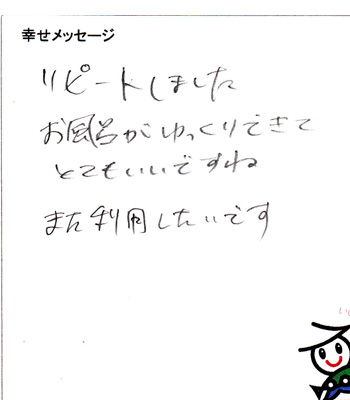 幸せメッセージ
リピートしました
お風呂がゆっくりできて
とてもいいですね
また利用したいです